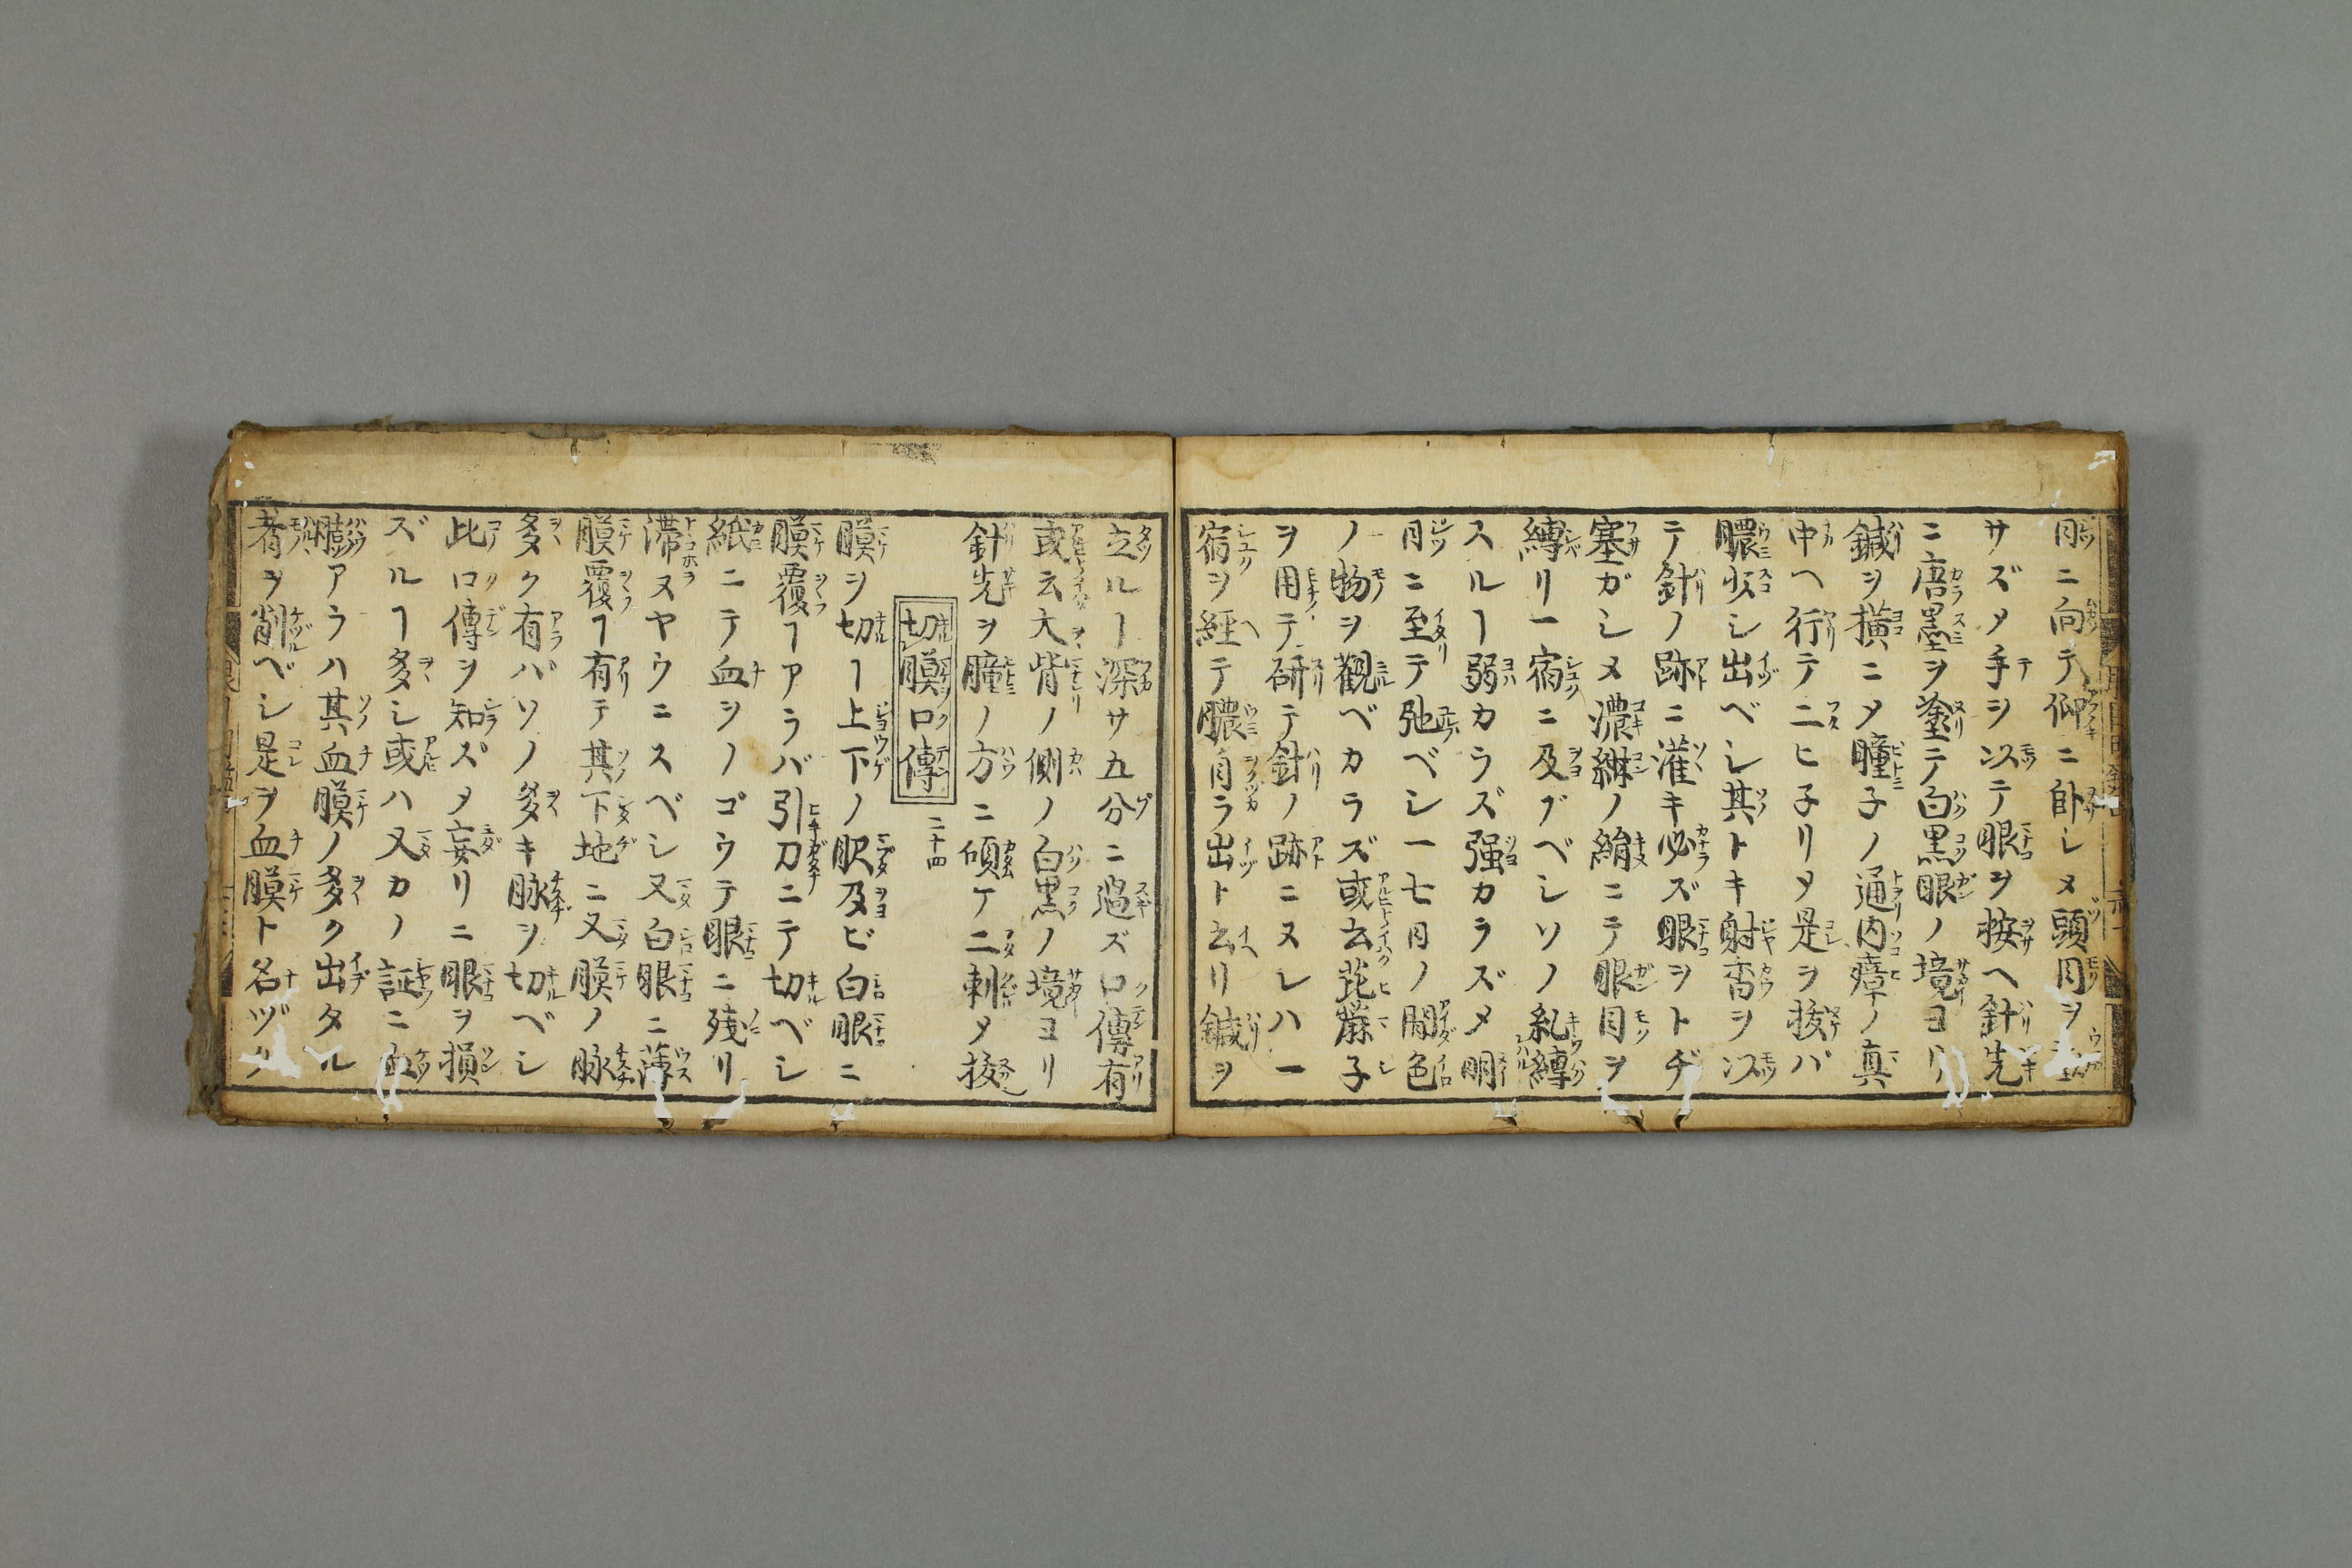 日ニ向テ仰ニ卧シメ頭目ヲ
サズメ手ヲ以テ眼ヲ按ヘ針先
ニ唐墨ヲ塗テ白黒眼ノ境ヨリ
鍼ヲ横ニメ瞳子ノ通内瘴ノ真
中ヘ行テ二ヒ子リメ是ヲ拔バ
膿少シ出ベシ其トキ射香ヲ以
テ針ノ跡ニ灌キ必ズ眼ヲトヂ
塞ガシメ濃紺ノ絹ニテ眼目ヲ
縛リ一宿ニ及ブベシソノ糺縳
スルヿ弱カラズ强カラズメ明
日ニ至テ弛ベシ一七日ノ間色
ノ物ヲ觀ベカラズ或云萞麻子
ヲ用テ研テ針ノ跡ニヌレハ一
宿ヲ經テ膿自ラ出ト云リ鍼ヲ
立ルヿ深サ五分ニ過ズ口傳有
或云大眥ノ側ノ白黒ノ境ヨリ
針先ヲ瞳ノ方ニ傾ケ二刺メ拔
切膜口傳 二十四
膜ヲ切ヿ上下ノ瞼及ビ白眼ニ
膜覆ヿアラバ引刀ニテ切ベシ
紙ニテ血ヲノゴウテ眼ニ残リ
滞ヌヤウニスベシ又白眼ニ薄
膜覆ヿ有テ其下地ニ又膜ノ脉
多ク有バソノ多キ脉ヲ切ベシ
此口傳ヲ知ズメ妄リニ眼ヲ損
ズルヿ多シ或ハ又カノ証ニ血
膨アラハ其血膜ノ多ク出タル
者ヲ削ベシ是ヲ血膜ト名ヅク